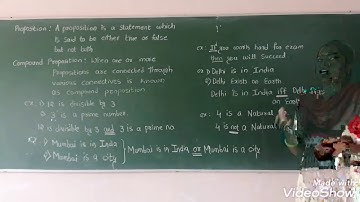 Proposition : A proposition is a statement which
is said to be either true or false
but not both
Compound Proposition : When one or more
Propositions are connected through
various connectives is known
as compound proposition
ex: i) 12 is divisible by 3
ii) 3 is a prime number.
12 is divisible by 3 and 3 is a prime no
i) Mumbai is in India
ii) Mumbai is a city
Mumbai is in India or Mumbai is a city
ex: If you work hard for exam
then you will succeed
ex: i) Delhi is in India
ii) Delhi Exist on Earth
Delhi is in India iff Delhi
on Earth
ex: 4 is a Natural
4 is not a Natural
Recorded with
VideoShow